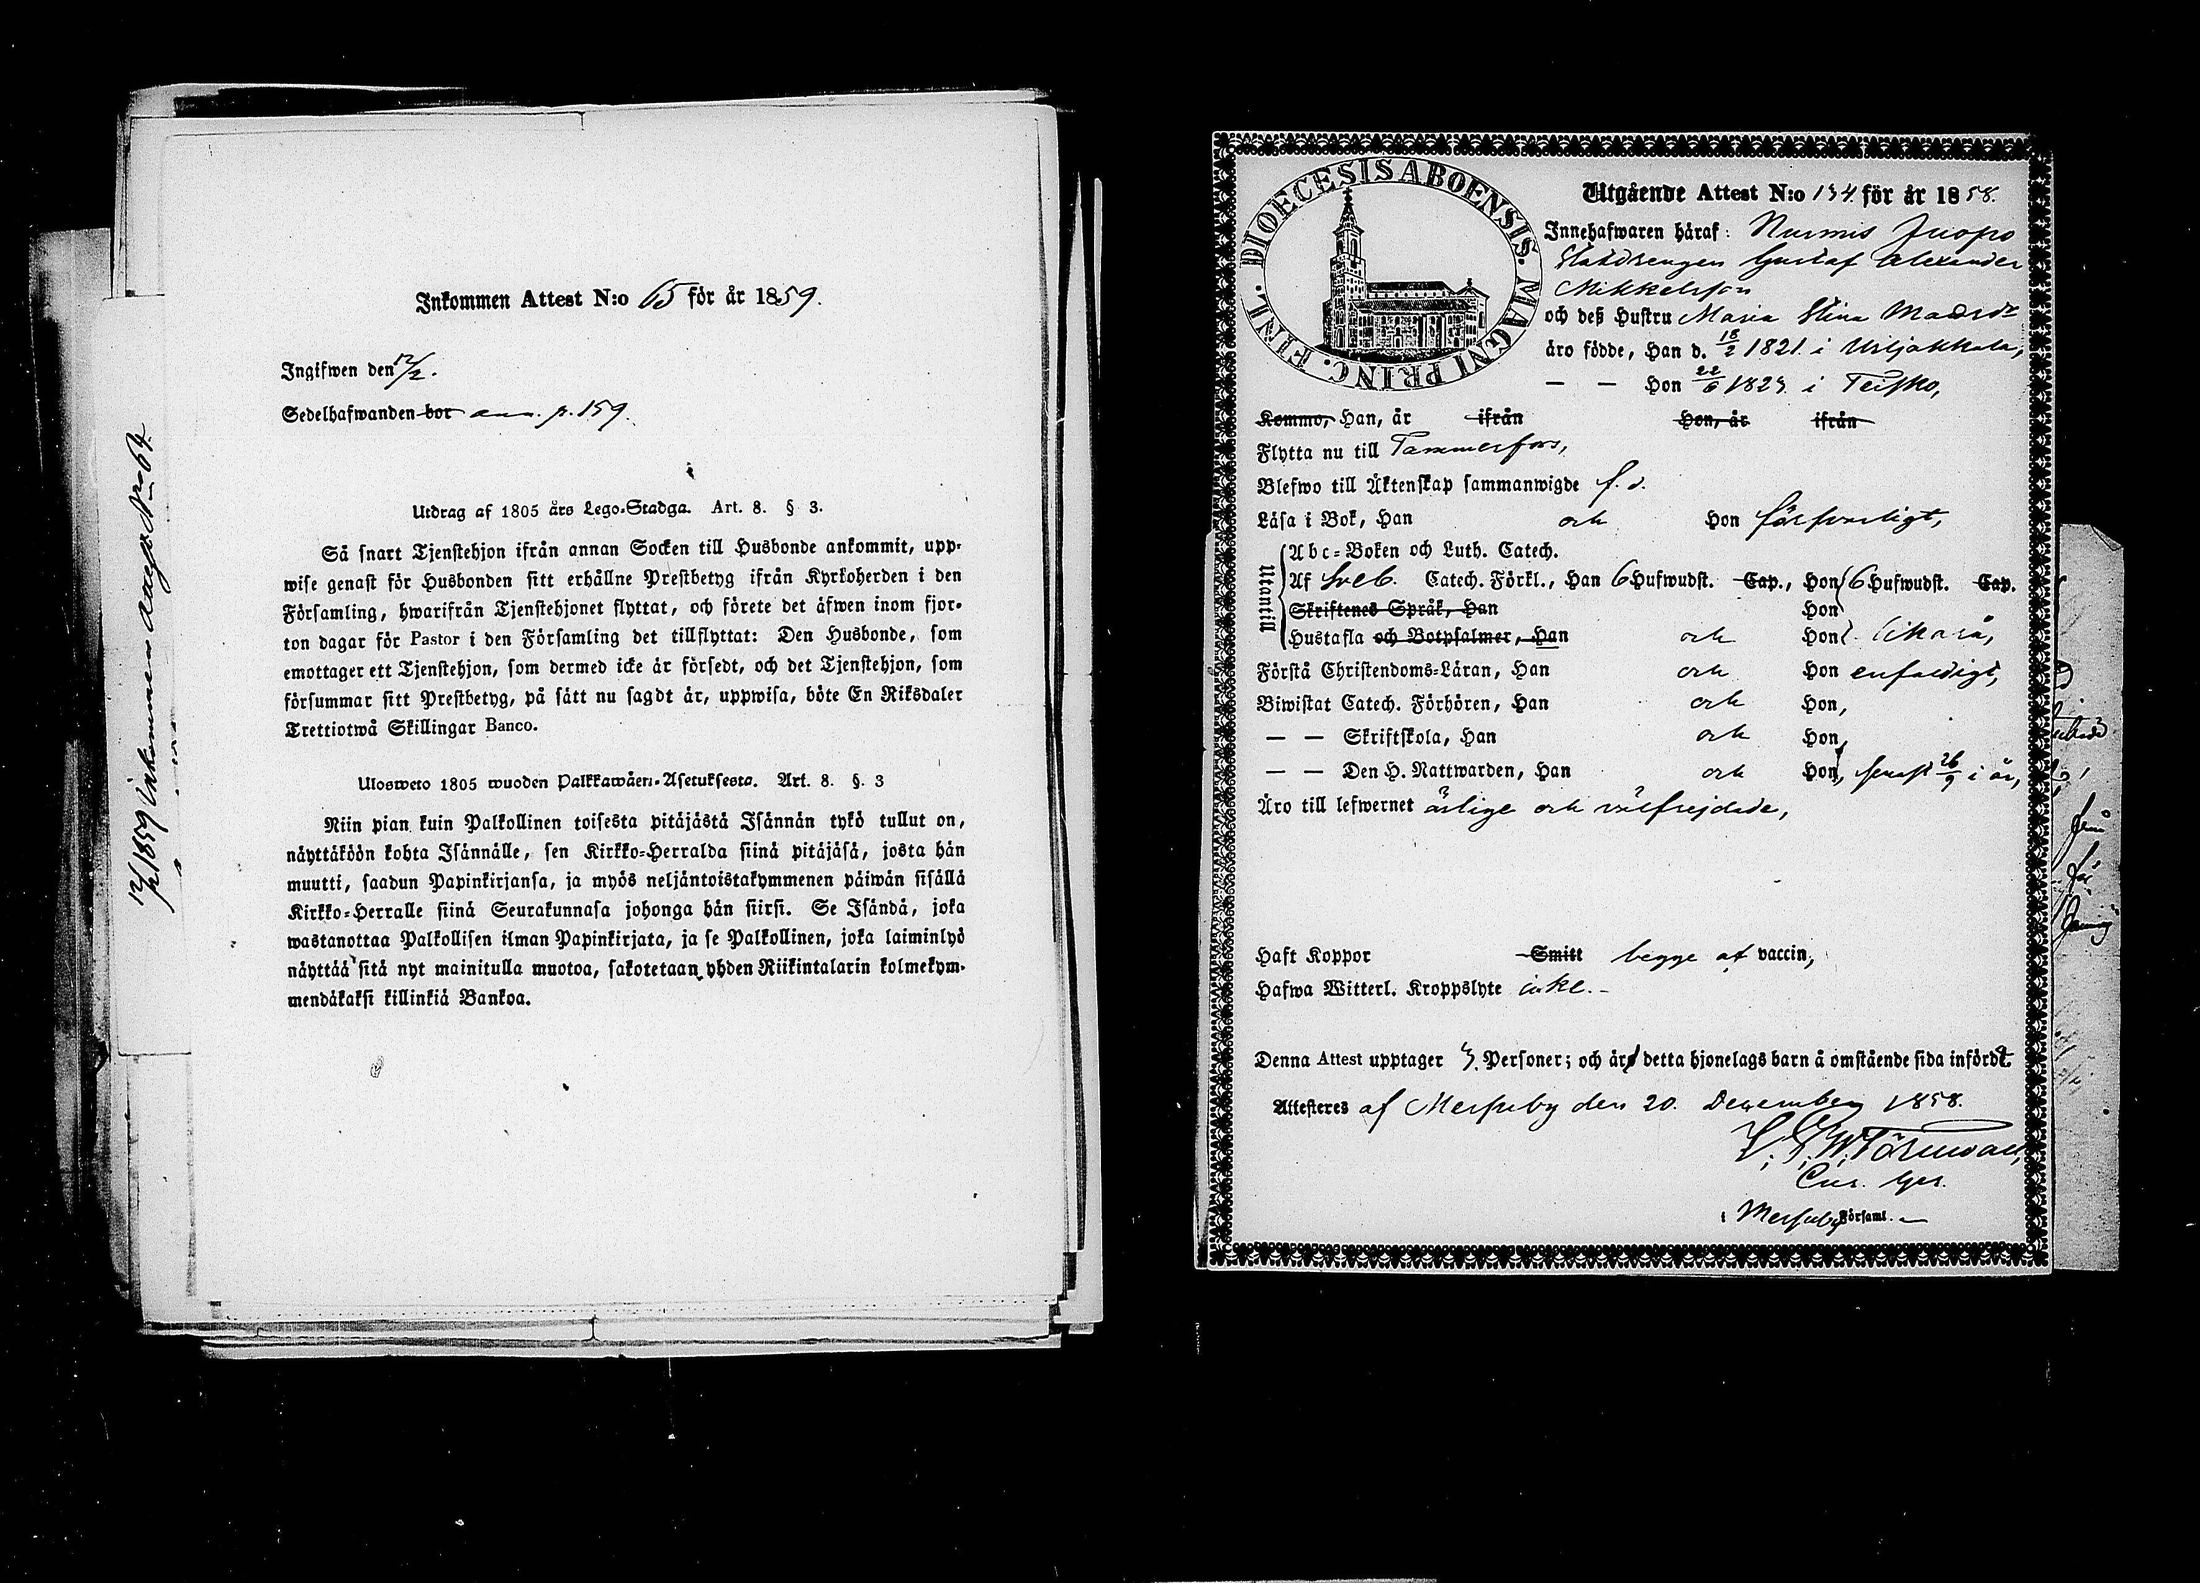 Inkommen Attest N:o 65 för år 1859.
Ingifwen den 12/2.
Sedelhafwanden bor ann. p. 159.
Utdrag af 1805 års Lego-Stadga. Art. 8. § 3.
Så snart Tjenstehjon ifrån annan Socken till Husbonde ankommit, upp-
wise genast för Husbonden sitt erhållne Prestbetyg ifrån Kyrkoherden i den
Församling, hwarifrån Tjenstehjonet flyttat, och förete det äfwen inom fjor-
ton dagar för Pastor i den Församling det tillflyttat: Den Husbonde, som
emottager ett Tjenstehjon, som dermed icke är försedt, och det Tjenstehjon, som
försummar sitt Prestbetyg, på sätt nu sagdt är, uppwisa, böte En Riksdaler
Trettiotwå Skillingar Banco.
Ulosweto 1805 wuoden Palkkawäen-Asetuksesta. Art. 8. §. 3
Niin pian kuin Palkollinen toisesta pitäjästä Isännän tykö tullut on,
näyttäköön kohta Isännälle, sen Kirkko-Herralda siinä pitäjäsä, josta hän
muutti, saadun Papinkirjansa, ja myös neljäntoistakymmenen päiwän sisällä
Kirkko-Herralle siinä Seurakunnasa johonga hän siirsi. Se Isändä, joka
wastanottaa Palkollisen ilman Papinkirjata, ja se Palkollinen, joka laiminlyö
näyttää sitä nyt mainitulla muotoa, sakotetaan yhden Riikintalarin kolmekym-
mendäkaksi killinkiä Bankoa.
12/2 1859 Inkommen N:o 64.
DIOECESIS ABOENSIS. MAGNI PRINC. FINL.
Utgående Attest N:o 134 för år 1858.
Innehafwaren häraf: Nurmis Juopo
Statdrengen Gustaf Alexander
Mikkelsson
och deß Hustru Maria Stina Madsdr
äro födde, Han d. 18/2 1821. i Urjakkala,
— — Hon 22/6 1823 i Teisko,
Kommo, Han, år ifrån Hon, år ifrån
Flytta nu till Tammerfors,
Blefwo till Äktenskap sammanwigde f. d.
Läsa i Bok, Han och Hon försvarligt,
Utantill
Abc-Boken och Luth. Catech.
Af Sveb. Catech. Förkl., Han 6 Hufwudst. Cap., Hon 6 Hufwudst. Cap.
Skriftenes Språk, Han Hon
Hustafla och Botpsalmer, Han och Hon likaså,
Förstå Christendoms-Läran, Han och Hon enfaldigt,
Biwistat Catech. Förhören, Han och Hon,
— — Skriftskola, Han och Hon,
— — Den H. Nattwarden, Han och Hon, senast 26/9 i år,
Äro till lefwernet ärlige och välfrejdade,
Haft Koppor Smitt begge af vaccin,
Hafwa Witterl. Kroppslyte icke.-
Denna Attest upptager 3. Personer; och är detta hjonelags barn å omstående sida infördt.
Attesteres af Messuby den 20. December 1858.
V. G. W. Törnwall,
Cur. Ger.
i Messuby Församl.